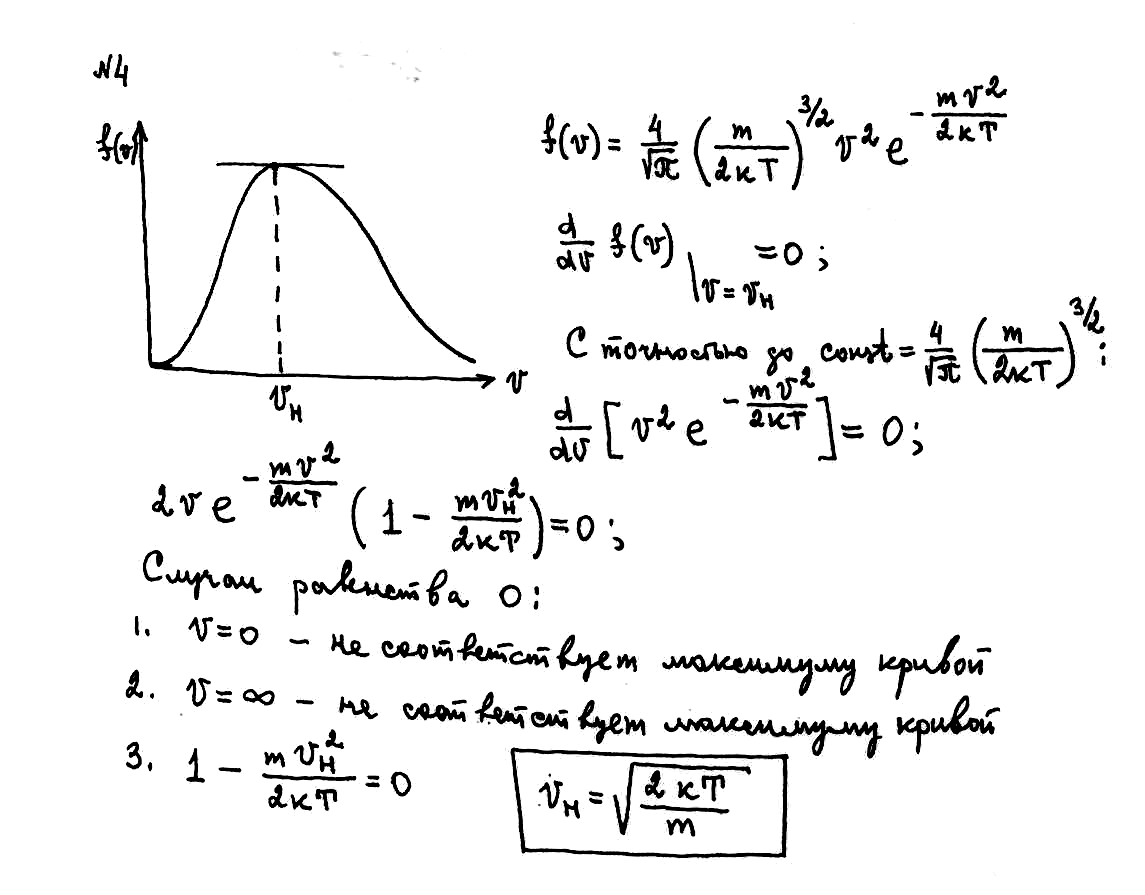 N4
f(v)
v
v_н
f(v) = 4/√π (m/2кT)^{3/2} v² e^{-mv²/2кT}
d/dv f(v) |_{v=v_н} = 0 ;
С точностью до const = 4/√π (m/2кT)^{3/2} :
d/dv [ v² e^{-mv²/2кT} ] = 0 ;
2v e^{-mv²/2кT} ( 1 - mv_н²/2кT ) = 0 ;
Случаи равенства 0 :
1. v = 0 - не соответствует максимуму кривой
2. v = ∞ - не соответствует максимуму кривой
3. 1 - mv_н²/2кT = 0
v_н = √(2кT/m)